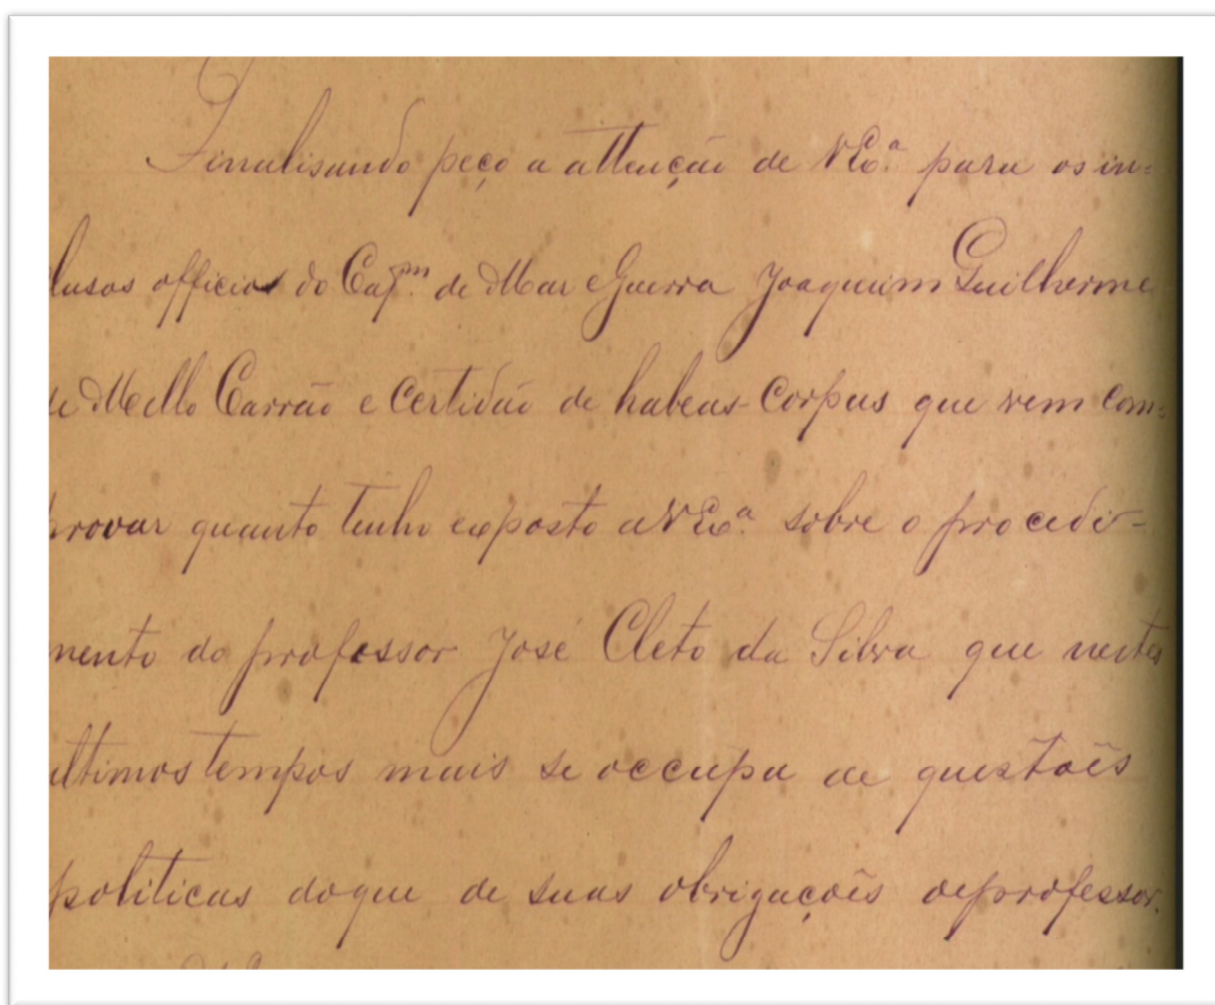 Finalisando peço a attenção de VEx.ª para os in=
clusos officios do Cap.m de Mar e Guerra Joaquim Guilherme
de Mello Carrão e certidão de habeas-corpus que vem com=
provar quanto tenho exposto a VEx.ª sobre o procedi-
mento do professor José Cleto da Silva que nestes
ultimos tempos mais se occupa de questões
politicas doque de suas obrigações de professor.